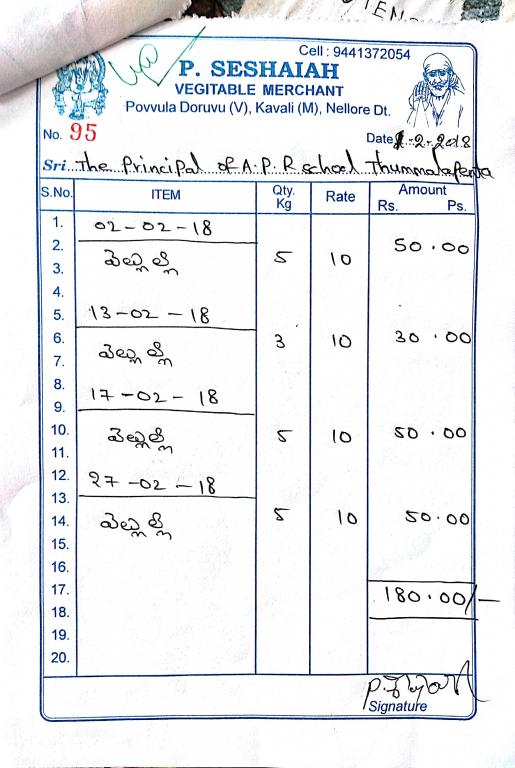 TEN
Cell : 9441372054
P. SESHAIAH
VEGITABLE MERCHANT
Povvula Doruvu (V), Kavali (M), Nellore Dt.
No. 95 Date 1-2-2018
Sri. The Principal of A.P.R school Thummalapenta
S.No. ITEM Qty. Kg Rate Amount Rs. Ps.
1. 02-02-18
2. 50.00
3. వెల్లుల్లి 5 10
4.
5. 13-02-18
6. 3 10 30.00
7. వెల్లుల్లి
8.
9. 17-02-18
10. వెల్లుల్లి 5 10 50.00
11.
12. 27-02-18
13.
14. వెల్లుల్లి 5 10 50.00
15.
16.
17. 180.00/-
18.
19.
20.
Signature